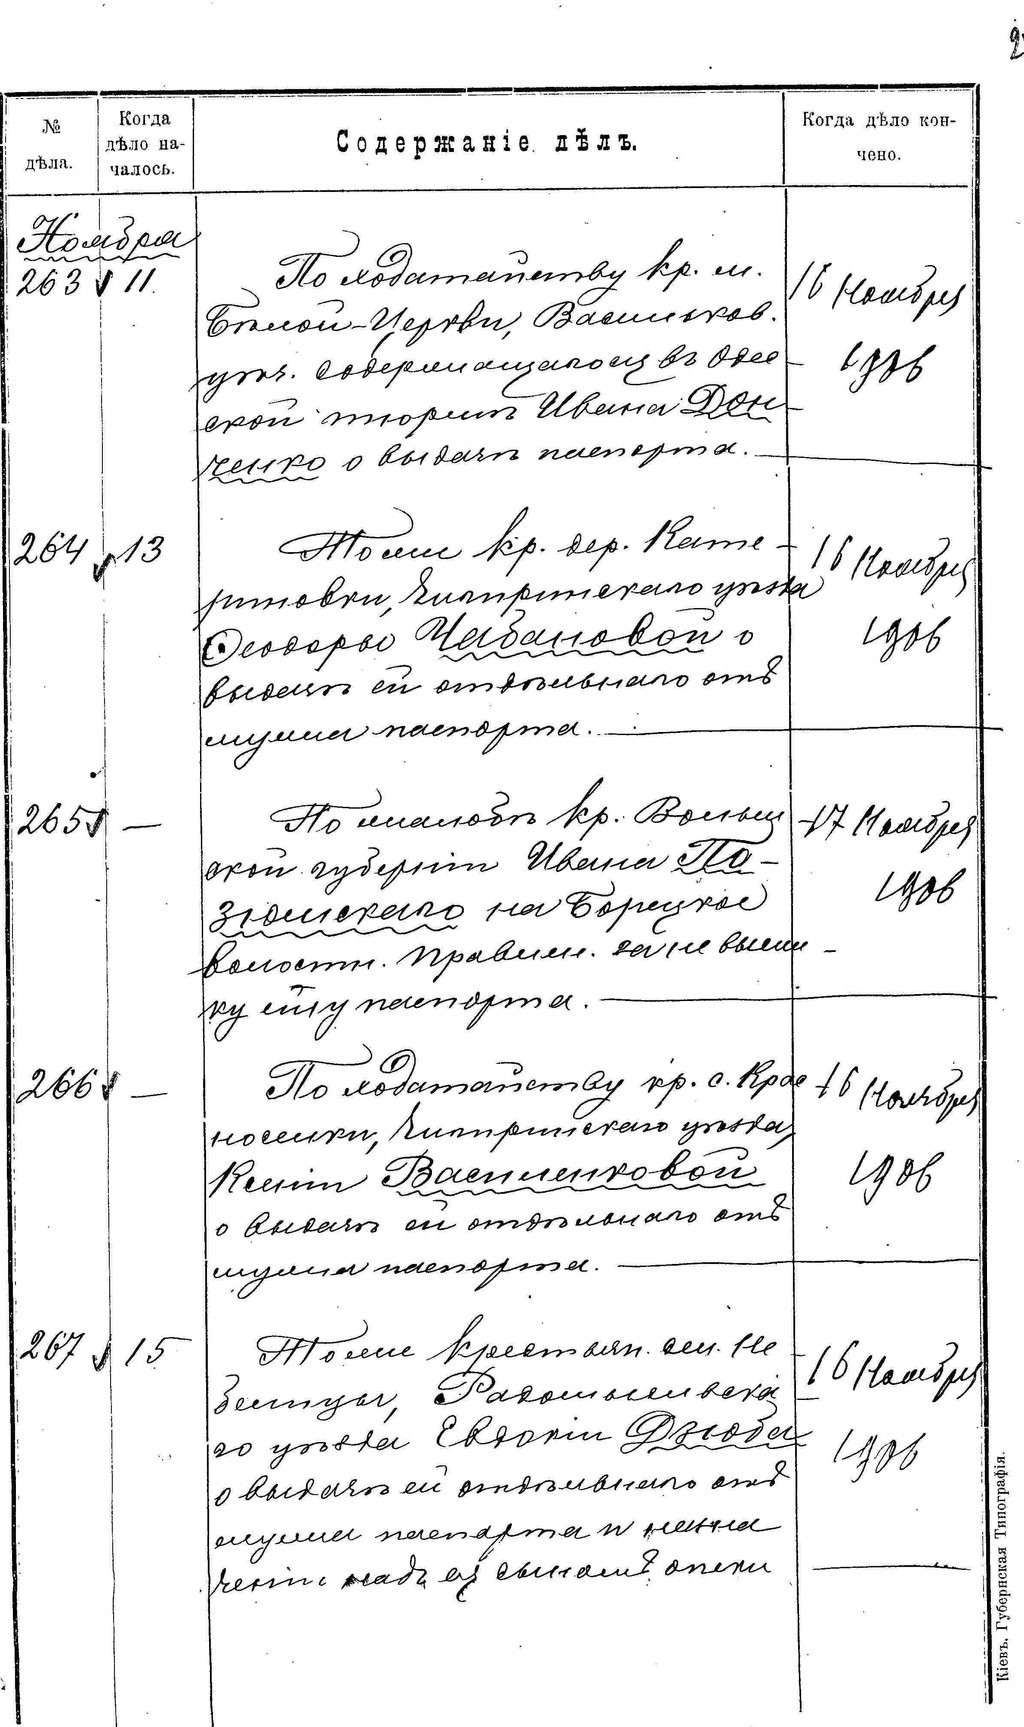 № дѣла.
Когда дѣло началось.
Содержаніе дѣлъ.
Когда дѣло кончено.
Ноября
263 11
По ходатайству кр. м.
Бѣлой-Церкви, Васильков.
уѣз. содержащагося въ Одес-
ской тюрьмѣ Ивана Дон-
ченко о выдачѣ паспорта.
16 Ноября
1906
264 13
Тоже кр. дер. Кате-
риновки, Чигиринскаго уѣзда
Ѳеодоры Чабановой о
выдачѣ ей отдѣльнаго отъ
мужа паспорта.
16 Ноября
1906
265 —
По жалобѣ кр. Волын
ской губерніи Ивана По-
зюмскаго на Борецкое
волостн. правлен. за не высыл-
ку ему паспорта.
17 Ноября
1906
266 —
По ходатайству кр. с. Крас
носелки, Чигиринскаго уѣзда,
Ксеніи Василенковой
о выдачѣ ей отдѣльнаго отъ
мужа паспорта.
16 Ноября
1906
267 15
Тоже крестьян. сел. Не
белицы, Радомысльска
го уѣзда Евдокіи Дзюба
о выдачѣ ей отдѣльнаго отъ
мужа паспорта и назна
ченіи надъ ея сыномъ опеки
16 Ноября
1906
Кіевъ, Губернская Типографія.